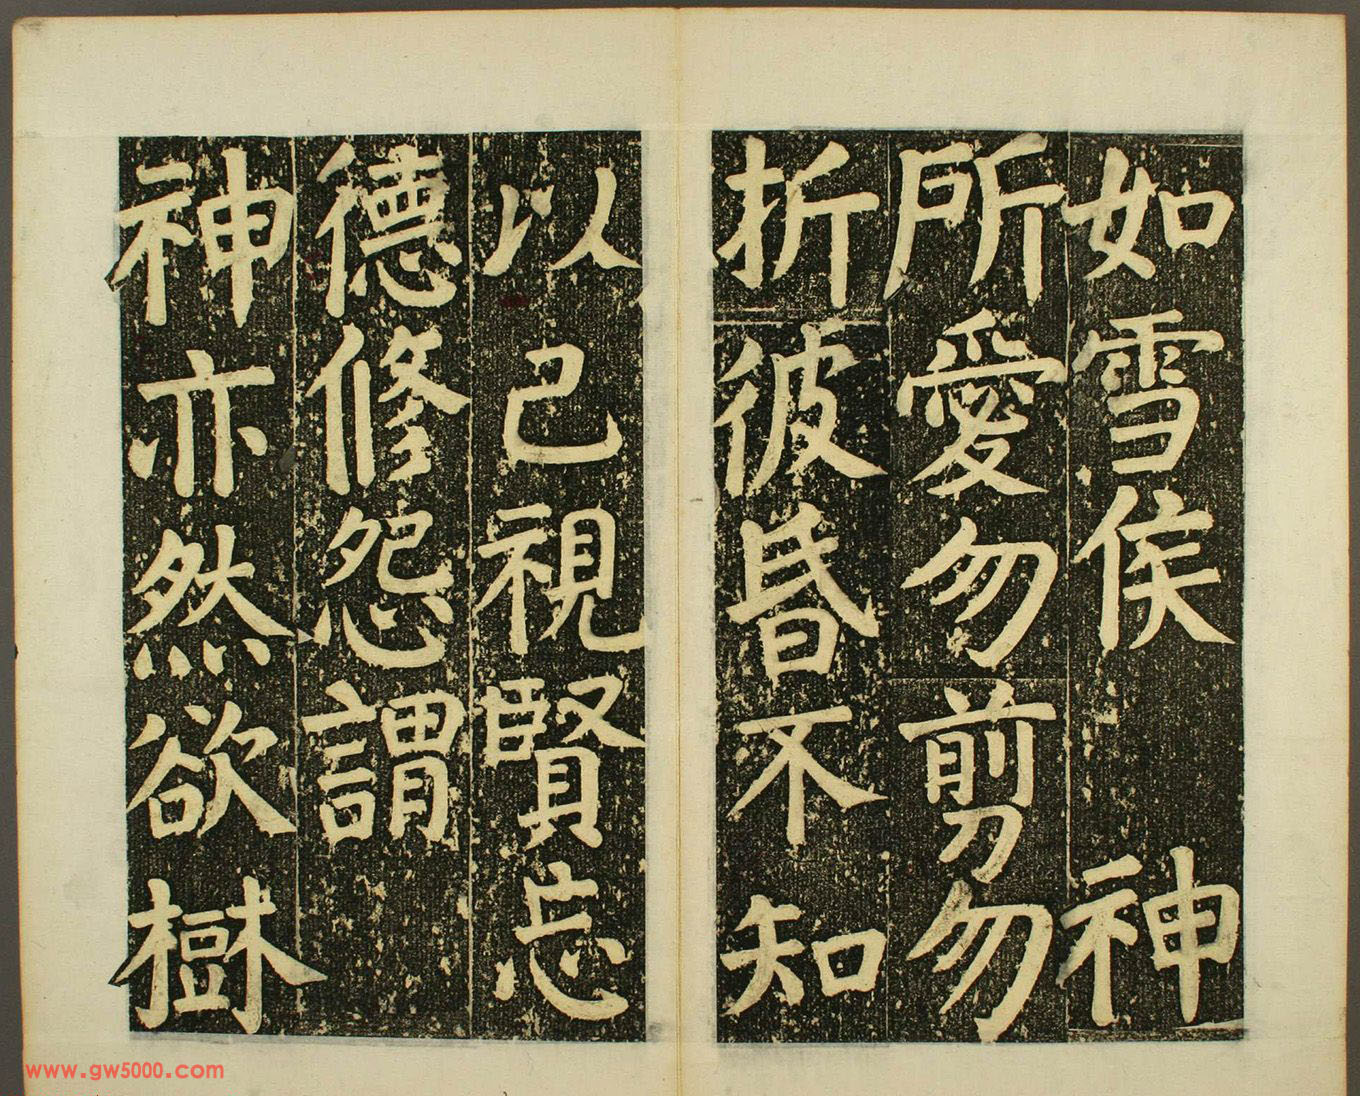 如雪侯 神
所愛勿剪勿
折彼昏不知
以己視賢忘
德修怨謂
神亦然欲樹
www.gw5000.com